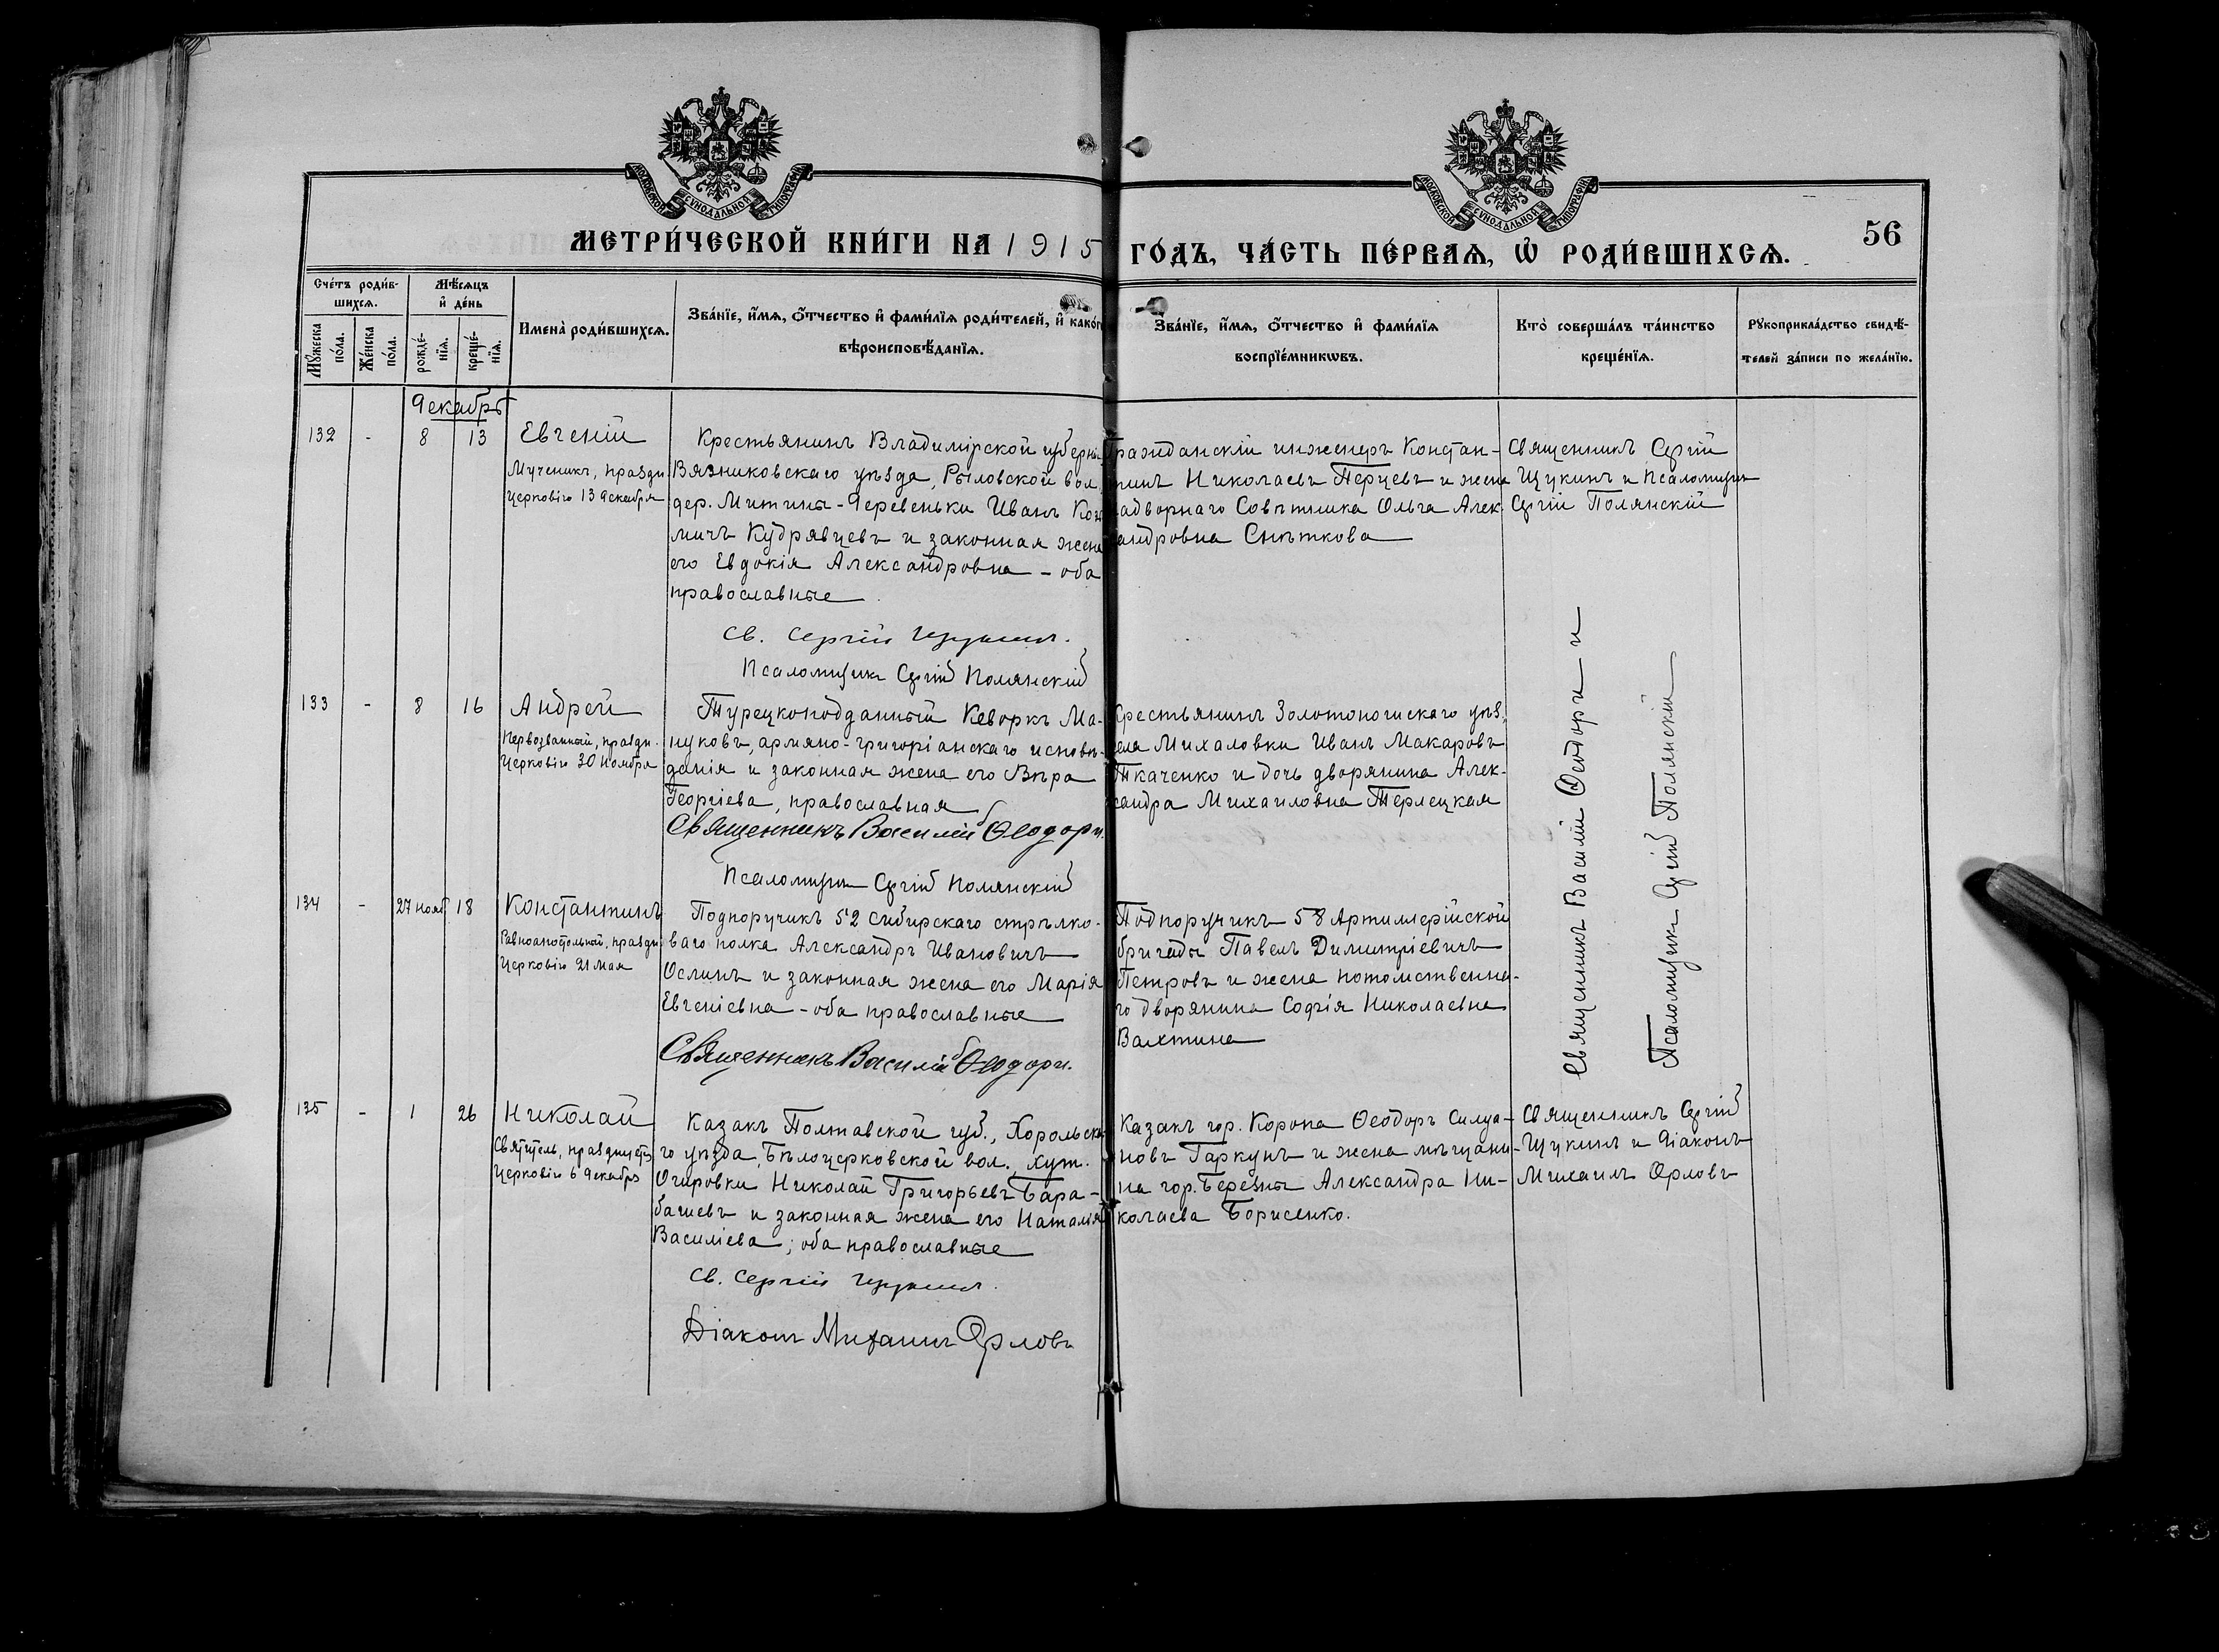 МОСКОВСКОЙ СѴНОДАЛЬНОЙ ТИПОГРАФІИ
МОСКОВСКОЙ СѴНОДАЛЬНОЙ ТИПОГРАФІИ
МЕТРИ́ЧЕСКОЙ КНИ́ГИ НА 1915 ГО́ДЪ, ЧА́СТЬ ПЕ́РВАѦ, Ѡ҆ РОДИ́ВШИХСѦ.
56
Сче́тъ роди́в-
шихсѧ.
Мѣ́сѧцъ
и҆ де́нь
Мꙋ́жеска
по́ла.
Же́нска
по́ла.
рожде́-
нїѧ.
креще́-
нїѧ.
Имена̀ роди́вшихсѧ.
Зва́нїе, и҆́мѧ, ѻ҆́тчество и҆ фами́лїѧ роди́телей, и҆ како́г
вѣроисповѣ́данїѧ.
Зва́нїе, и҆́мѧ, ѻ҆́тчество и҆ фами́лїѧ
воспрїе́мникѡвъ.
Кто̀ соверша́лъ та́инство
креще́нїѧ.
Рꙋкоприкла́дство свидѣ́-
телей за́писи по жела́нїю.
Декабрь
132 - 8 13
Евгеній
Мученикъ, праздн.
Церковію 13 декабря
Крестьянинъ Владимірской губерні
Вязниковскаго уѣзда, Рыловской вол.
дер. Митины-Деревеньки Иванъ
мичъ Кудрявцевъ и законная жена
его Евдокія Александровна - оба
православные
Св. Сергій Щукинъ.
Псаломщикъ Сергій Полянскій
Гражданскій инженеръ Констан-
тинъ Николаевъ Перцевъ и жена
Надворнаго Совѣтника Ольга Алек
сандровна Снѣткова
Священникъ Сергій
Щукинъ и Псаломщикъ
Сергій Полянскій
133 - 8 16
Андрей
Первозванный, праздн.
Церковію 30 ноября
Турецкоподданный Кеворкъ Ма-
нуковъ, армяно-григоріанскаго исповѣ-
данія и законная жена его Вѣра
Георгіева, православная
Священникъ Василій Ѳеодори.
Псаломщикъ Сергій Полянскій
Крестьянинъ Золотоношскаго уѣз.
села Михаловки Иванъ Макаровъ
Ткаченко и дочь дворянина Алек-
сандра Михаиловна Терлецкая
Священникъ Василій Ѳеодори и
Псаломщикъ Сергій Полянскій
134 - 27 нояб 18
Константинъ
Равноапостольный, праздн
Церковію 21 Мая
Подпоручикъ 52 Сибирскаго стрѣлко-
ваго полка Александръ Ивановичъ
Ослинъ и законная жена его Марія
Евгеніевна - оба православные
Священникъ Василій Ѳеодори.
Подпоручикъ 58 Артиллерійской
бригады Павелъ Димитріевичъ
Петровъ и жена потомственна-
го дворянина Софія Николаевна
Вахтина
135 - 1 26
Николай
Святитель, празднует
Церковію 6 декабря
Казакъ Полтавской губ., Хорольска
го уѣзда, Бѣлоцерковской вол., хут.
Огировки Николай Григорьевъ Бара-
башевъ и законная жена его Наталія
Василіева; оба православные
Св. Сергій Щукинъ.
Діаконъ Михаилъ Орловъ
Казакъ гор. Коропа Ѳеодоръ Силуа-
новъ Гаркунъ и жена мѣщани-
на гор. Березны Александра Ни-
колаева Борисенко.
Священникъ Сергій
Щукинъ и Діаконъ
Михаилъ Орловъ